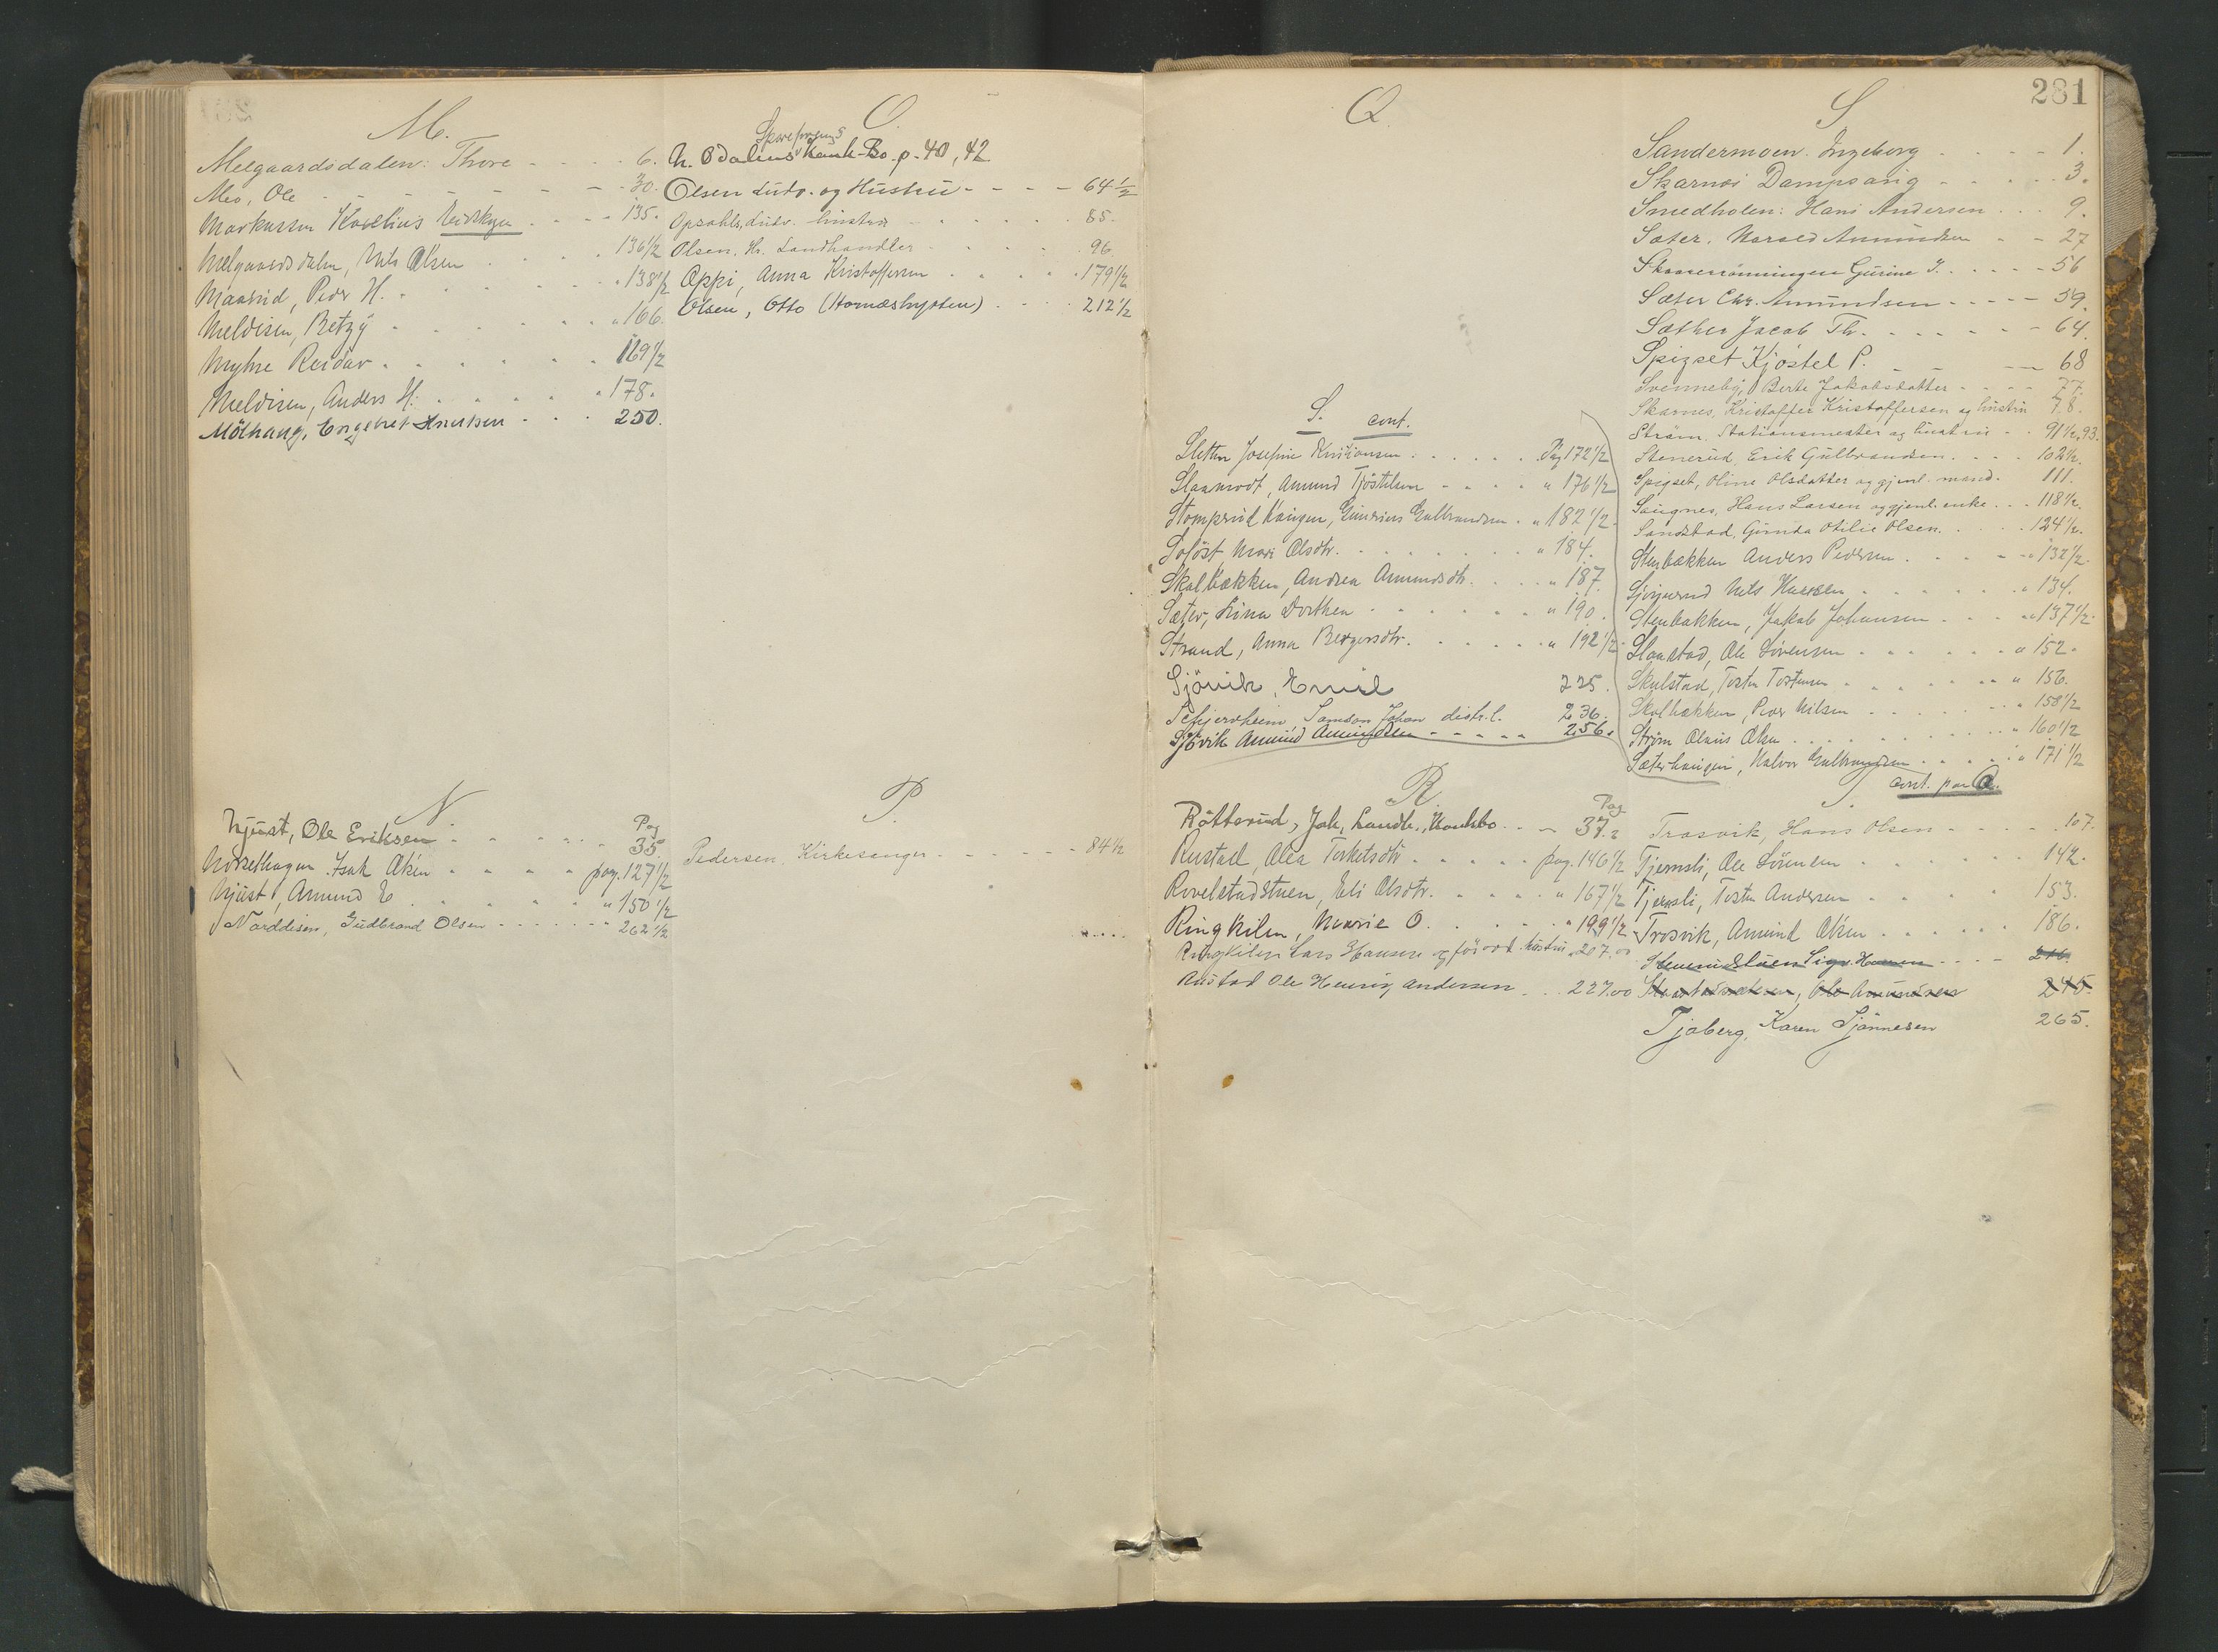 M.
Melgaardsdalen: Thore - - - - 6.
Meo, Ole - - - - - - - 30.
Markussen - - - 135.
Melgaardsdalen, Nils Olsen . . . . 136 1/2
Maarud, Peder H. . . . . . 138 1/2
Meldisen, Betzy . . . . . . " 166.
Myhre Reidar . . . . . . 169 1/2
Meldisen, Anders H. . . . . . " 178.
Mölhaug, Engebret Knutsen - . . 250.
N.
Pag
Njust, Ole Eriksen . . . . . . 35
Norsethagen Isak . . . . . pag. 127 1/2
Njust, Amund E . . . . . . " 150 1/2
Norddisen, Gudbrand Olsen - - - - - - 262 1/2
O.
N. Odalens Bo. p. 40, 42
Olsen Ludv. og Hustru - - - - 64 1/2
Opsahl, Ludv. hustru - . . . . . . 85.
Olsen. Hr. Landhandler - . . . 96
Oppi, Anna Kristoffersen . . . . . 179 1/2
Olsen, Otto (Hornæshytten) . . . . 212 1/2
P.
Pedersen, Kirkesanger - - - - - - 84 1/2
Q.
S. cont.
Sletten Josefine Kristiansen . . . . . . Pag 172 1/2
Slaamodt, Amund Tjöstelsen - - . - " 176 1/2
Stomperud Haugen, Gulbrandsen . . " 182 1/2
Solöst Mari Olsdtr. . . . . . . . . " 184.
Skolbækken, Andrea Amundsdtr. . . . . " 187.
Sæter, Lina Dorthea . . . . . . . " 190.
Strand, Anna Bergersdtr. . . . . . . " 192 1/2
Sjövik, Emil 225.
Samson Johan distr.l. 236.
Sjövik Amund Amundsen - - - - - 256.
R.
Pag
Röttorud, Joh, Landh., Konkbo. - - 37.
Rustad, Olea Torkelsdtr . . . . . pag. 146 1/2
Rovelstadstuen, Eli Olsdtr. . . . . " 167 1/2
Ringkilen, Marie O. . . . . . " 199 1/2
Ringkilen Lars Hansen og hustru " 207.00
Rustad Ole Henrik Andersen . . . 227.00
281
S
Sandermoen. Ingeborg . . . - - 1.
Skarnæs Dampsaug - - - - . . 3.
Smedholen: Hans Andersen . . . 9.
Sæter, Harald Amundsen - - 27
Gurine J. - . . . - 56
Sæter Chr. Amundsen - - - - - 59.
Sæther Jacob Th. . . . . - - 64.
Spigset Kjöstel P. - - - 68
Svenneby, Berte Jakobsdatter - - - - 77.
Skarnes, Kristoffer Kristoffersen og hustru 78.
Ström, Stationsmester og hustru - - 91 1/2, 93.
Stenerud, Erik Gulbrandsen. . . . 102 1/2.
Spigset, Oline Olsdatter og gjenl. mand. 111.
Saugnes, Hans Larsen og gjenl. enke . . . 118 1/2.
Sandstad, Gunda Otilie Olsen. . . . . . 124 1/2.
Stenbækken Anders Pedersen . . . . - " 132 1/2.
Nils Hansen . . . . . . " 134.
Stenbakken, Jakob Johansen . . . " 137 1/2
Slaastad, Ole Sörensen . . . . . . " 152.
Skulstad, Tosten Tostensen . . . . . . " 156.
Skolbækken, Peder Nilsen . . . . . . " 158 1/2
Ström Olaus Olsen . . . . . . . . " 160 1/2
Sæterhaugen, Halvor Gulbrandsen . . . . " 171 1/2
cont. paa Q.
T.
Trosvik, Hans Olsen - - - - - 107.
Tjernsli, Ole Sörensen . . . . . . 142.
Tjernsli, Tosten Andersen . . . . 153.
Trosvik, Amund Olsen . . . . . . 186.
Sigv. Hansen - - - - 216.
Ole Amundsen 245.
Tjaberg, Karen Tjönnesen 265.